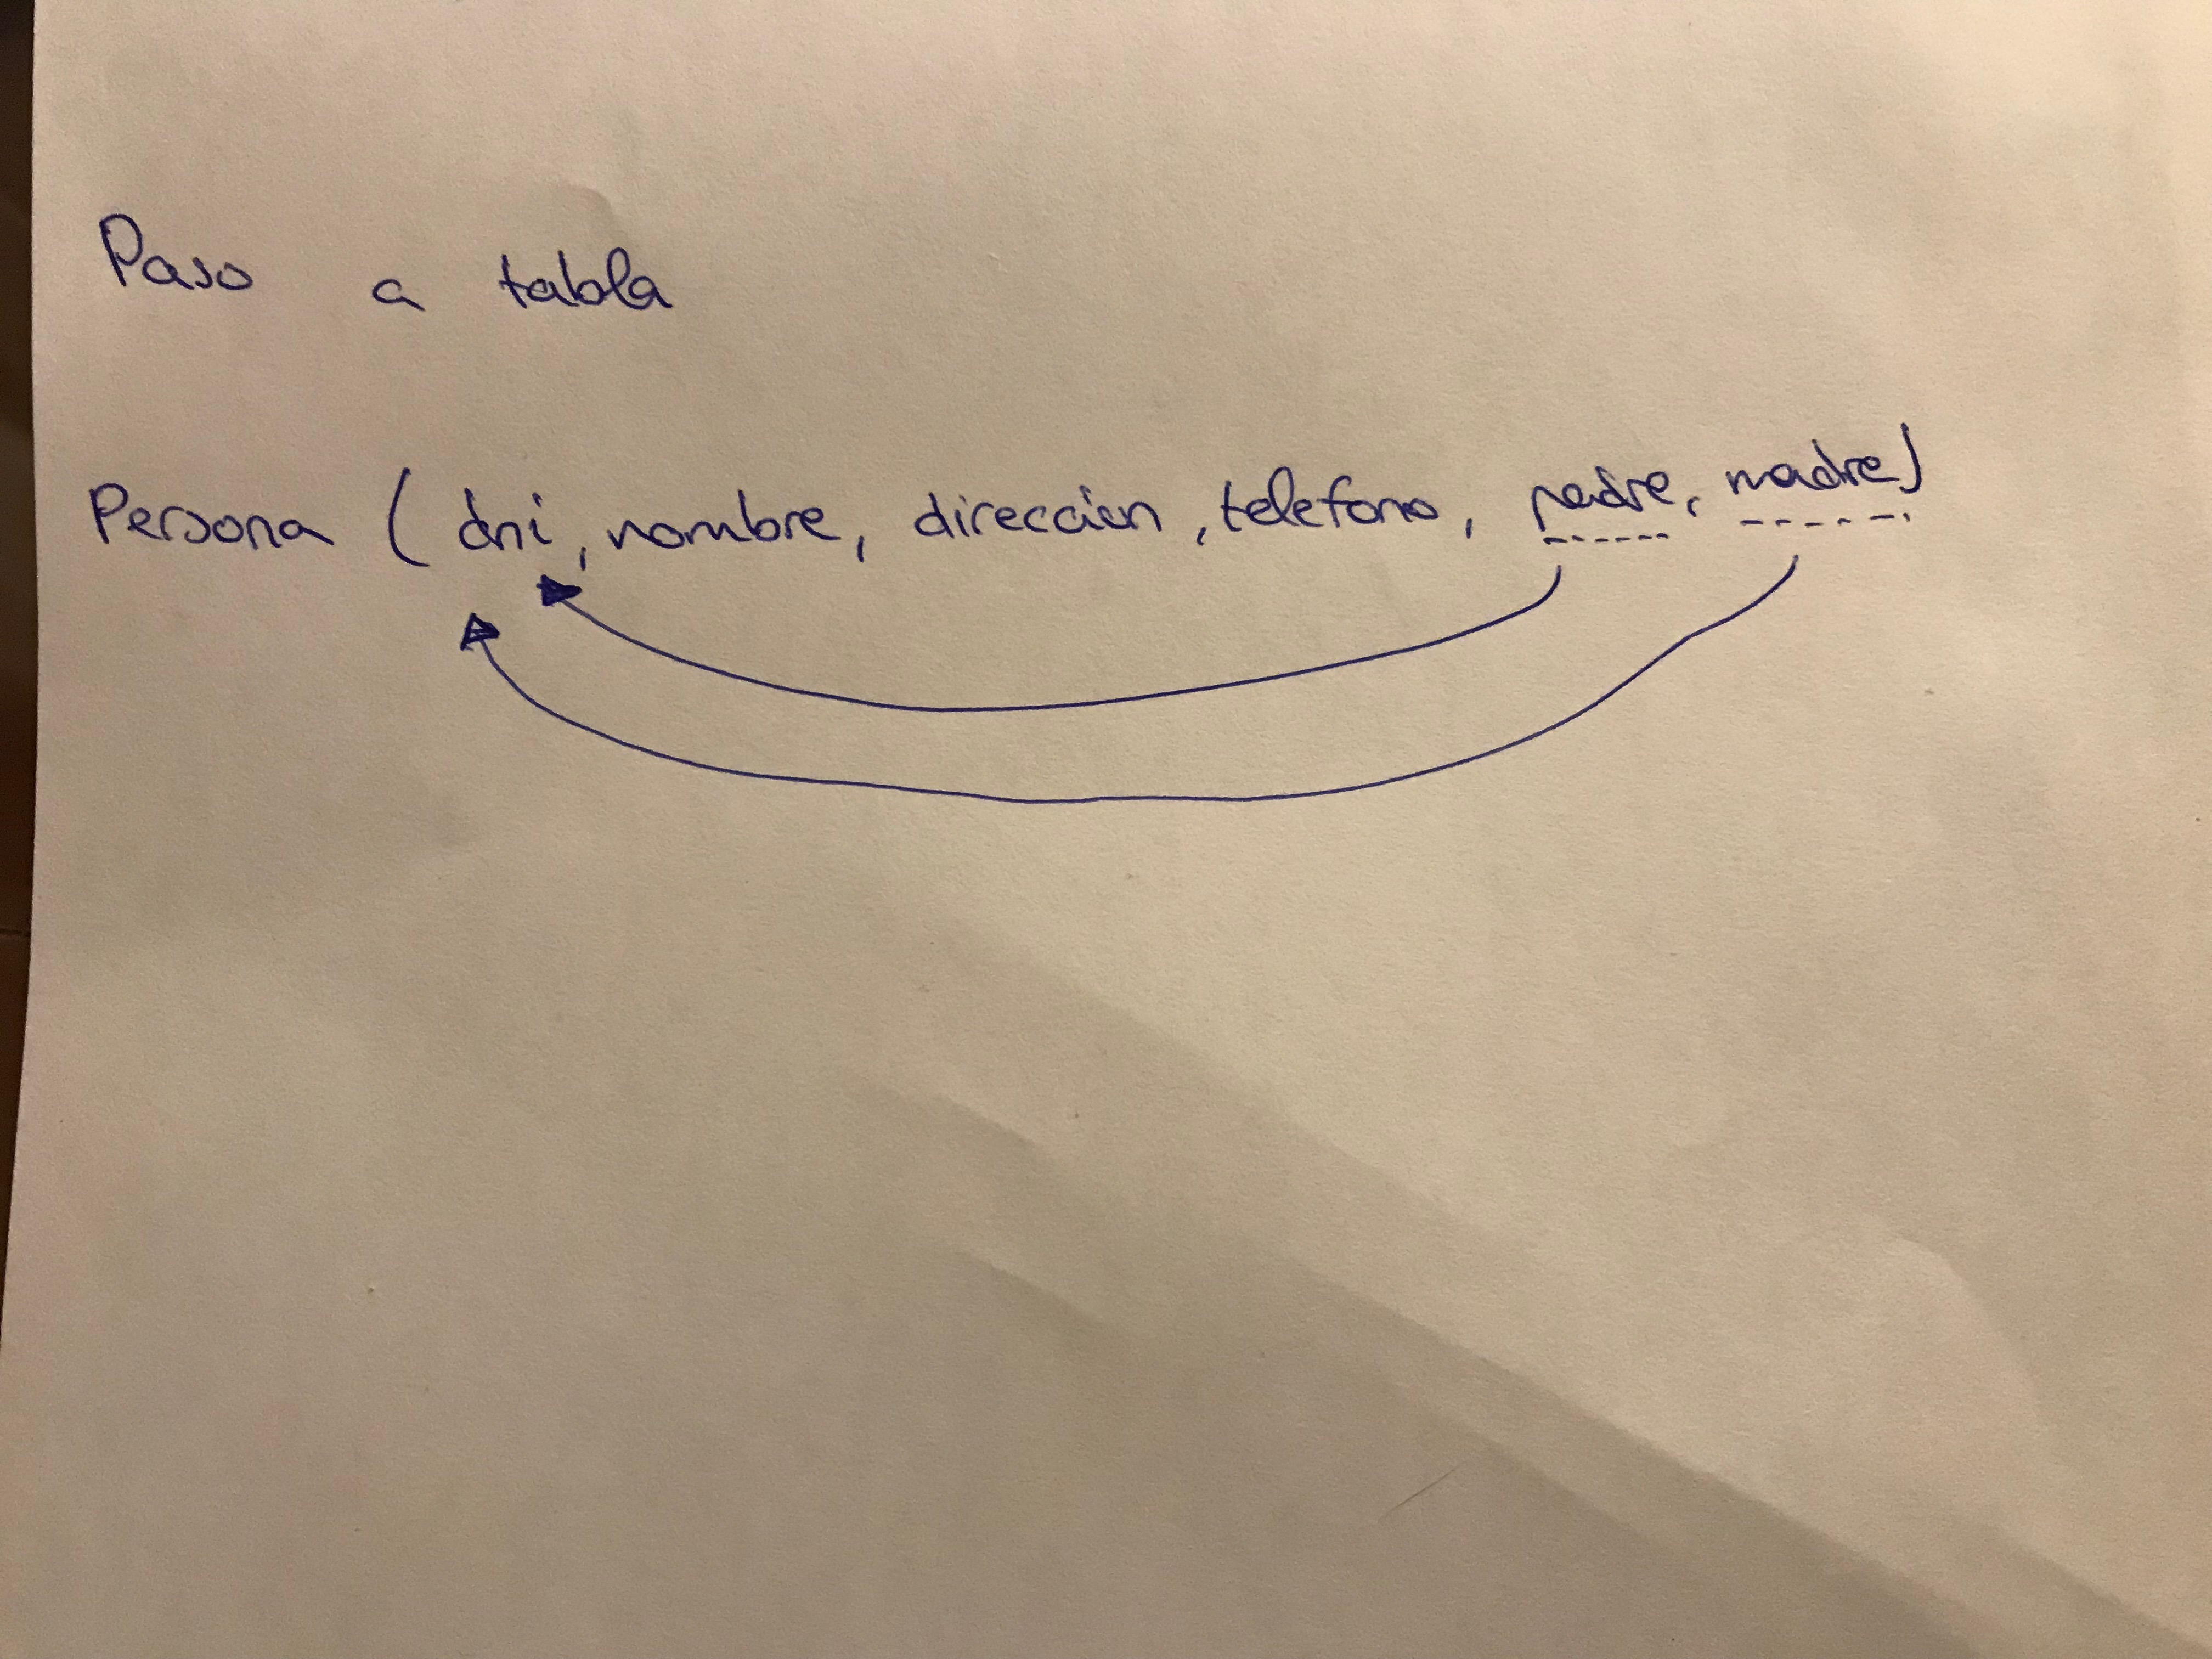 Paso a tabla
Persona ( dni, nombre, direccion, telefono, padre, madre)